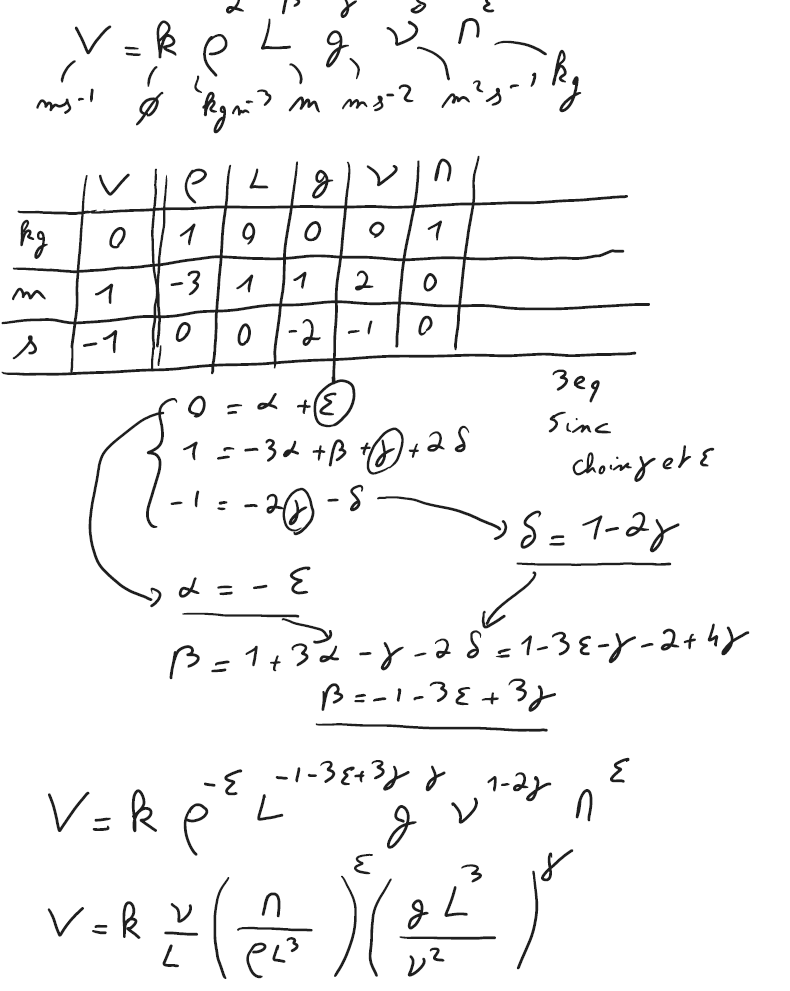 α β γ δ ε
V = k ρ L g ν n
ms⁻¹ ∅ kgm⁻³ m ms⁻² m²s⁻¹ kg
V ρ L g ν n
kg 0 1 0 0 0 1
m 1 -3 1 1 2 0
s -1 0 0 -2 -1 0
0 = α + ε
3 eq
1 = -3α + β + γ + 2δ
5 inc
-1 = -2γ - δ
choix γ et ε
δ = 1 - 2γ
α = - ε
β = 1 + 3α - γ - 2δ = 1 - 3ε - γ - 2 + 4γ
β = -1 - 3ε + 3γ
V = k ρ^-ε L^-1-3ε+3γ g^γ ν^1-2γ n^ε
V = k ν/L (n/ρL³)^ε (gL³/ν²)^γ